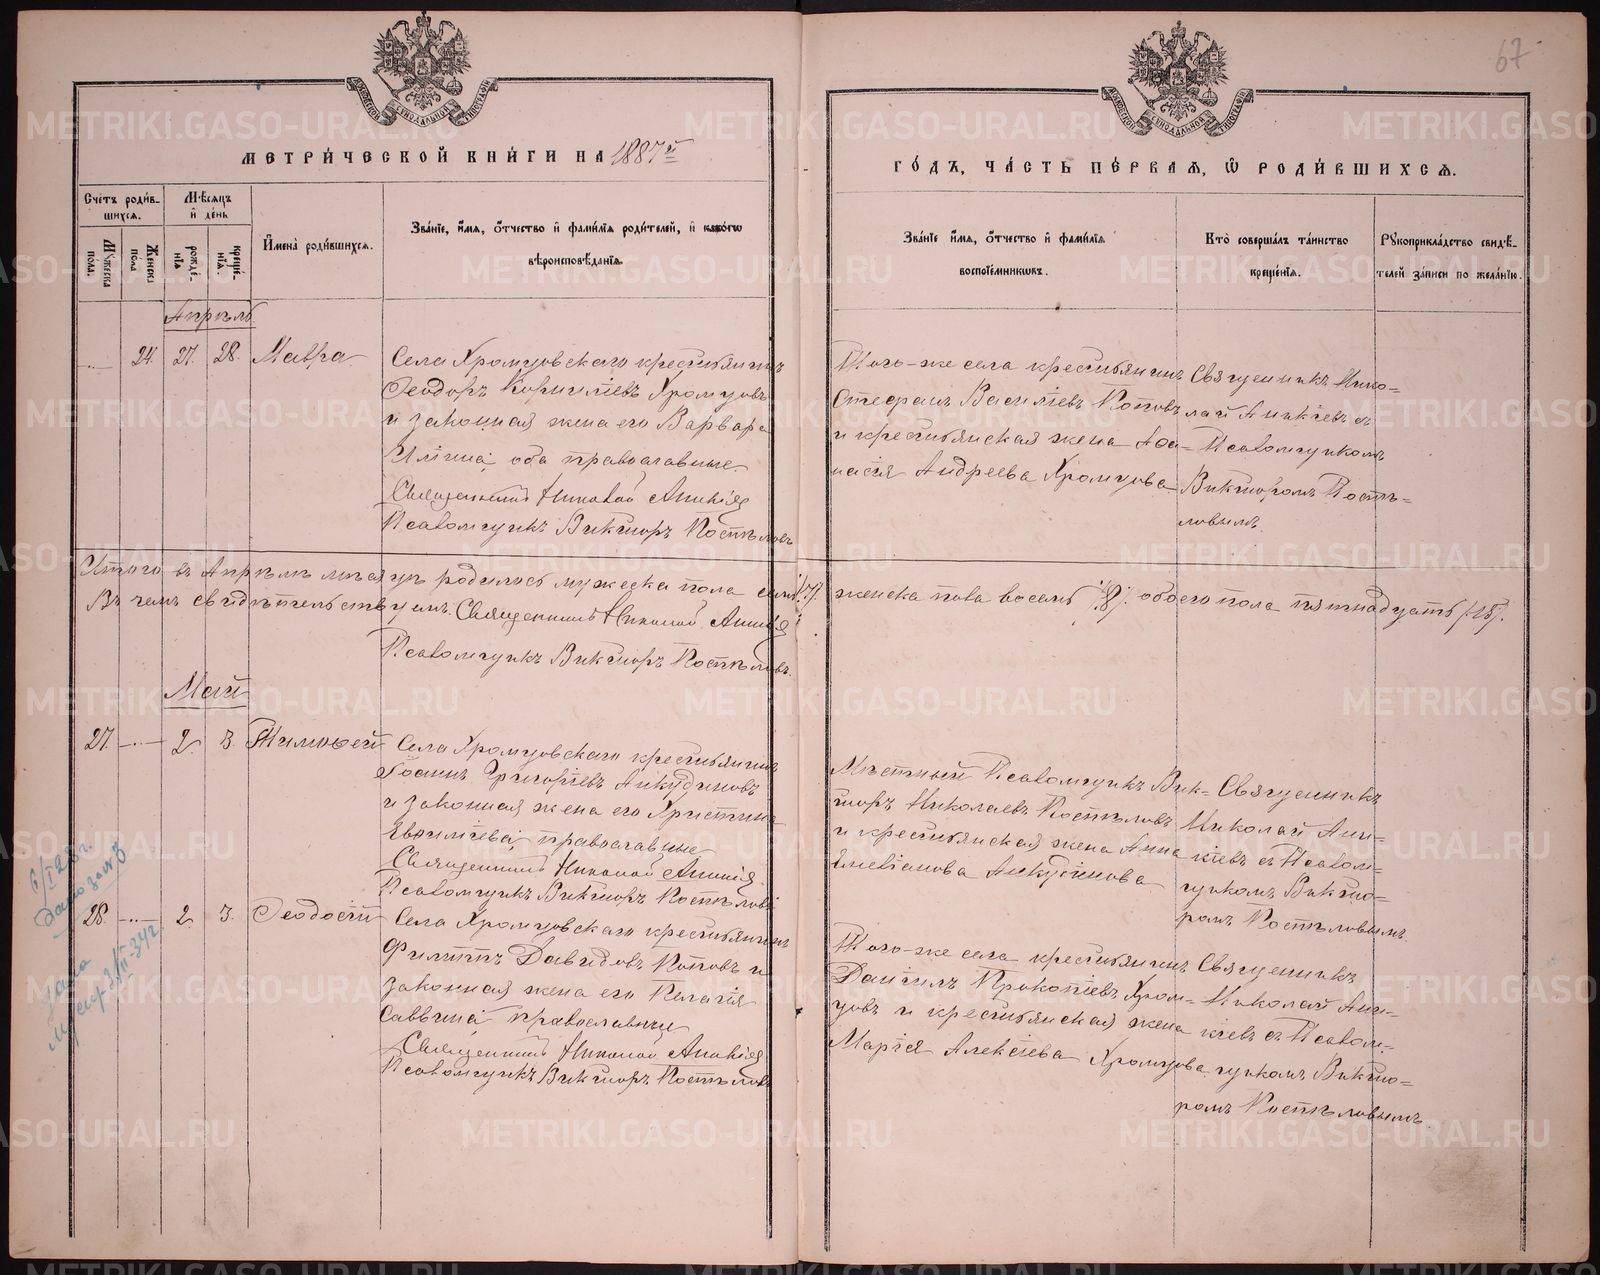 67
МЕТРИ́ЧЕСКОЙ КНИ́ГИ НА 1887й
ГО́ДЪ, ЧА́СТЬ ПЕ́РВАЯ, Ѡ РОДИ́ВШИХСЯ.
Сче́тъ роди́в-
шихся.
Мѣ́сяцъ
и҆ де́нь
Мꙋ́жеска
пола.
Же́нска
по́ла
рожде́-
нїѧ
креще́-
нїѧ.
И҆мена̀ роди́вшихся.
Зва́нїе, и҆́мѧ, ѻ҆́тчество и҆ фами́лїѧ роди́телей, и҆ како́гѡ
вѣроисповѣ́данїѧ.
Зва́нїе и҆́мѧ, ѻ҆́тчество и҆ фами́лїѧ
воспрїе́мникѡвъ.
Кто̀ соверша́лъ та́инство
креще́нїѧ.
Рꙋкоприкла́дство свидѣ́-
телей за́писи по жела́нїю.
Апрѣль
24. 27. 28. Мавра
Села Хромцовскаго крестьянинъ
Ѳеодоръ Корниліевъ Хромцовъ
и законная жена его Варвара
Иліина, оба православные.
Священникъ Николай Аникіев
Псаломщикъ Викторъ Поспѣловъ
Того-же села крестьянинъ
Стефанъ Василіевъ Поповъ
и крестьянская жена Аѳа-
насія Андреева Хромцова
Священникъ Нико-
лай Аникіевъ съ
Псаломщикомъ
Викторомъ Поспѣ-
ловымъ.
Итого въ Апрѣлѣ мѣсяцѣ родилось мужеска пола семь /7/. женска пола восемь /8/. обоего пола пятнадцать /15/.
Въ чемъ свидѣтельствуемъ. Священникъ Николай Аникіев
Псаломщикъ Викторъ Поспѣловъ.
Май
27. 2. 3. Тимоѳей
Села Хромцовскаго крестьянинъ
Іоаннъ Григоріевъ Анкудиновъ
и законная жена его Христина
Евѳиміева, православные
Священникъ Николай Аникіев
Псаломщикъ Викторъ Поспѣловъ
Мѣстный Псаломщикъ Вик-
торъ Николаевъ Поспѣловъ
и крестьянская жена Анна
Анкудинова
Священникъ
Николай Ани-
кіевъ съ Псалом-
щикомъ Викто-
ромъ Поспѣловымъ.
28. 2. 3. Ѳеодосій
Села Хромцовскаго крестьянинъ
Филиппъ Давидовъ Поповъ и
законная жена его Пелагія
Саввина, православные
Священникъ Николай Аникіев
Псаломщикъ Викторъ Поспѣловъ
Того-же села крестьянинъ
Даніилъ Прокопіевъ Хром-
цовъ и крестьянская жена
Марія Алексіева Хромцова
Священникъ
Николай Ани-
кіевъ съ Псалом-
щикомъ Викто-
ромъ Поспѣловымъ.
METRIKI.GASO-URAL.RU